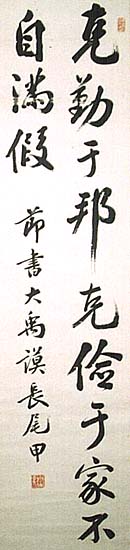 克勤于邦克儉于家不
自滿假
節書大禹謨長尾甲